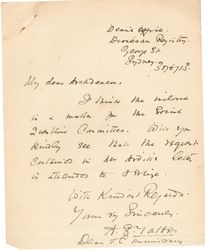 Deanis Office
Diocesan Registry
George St
Sydney
My dear Archdeacon.
I think the enclosed
is a matter for the Social
Questions Committee. Will you
kindly see that the request
contained in
letter
is attended to & oblige.
With Kindest Regards.
Yours vy Sincerely.
A. E. Talbot
Dean &